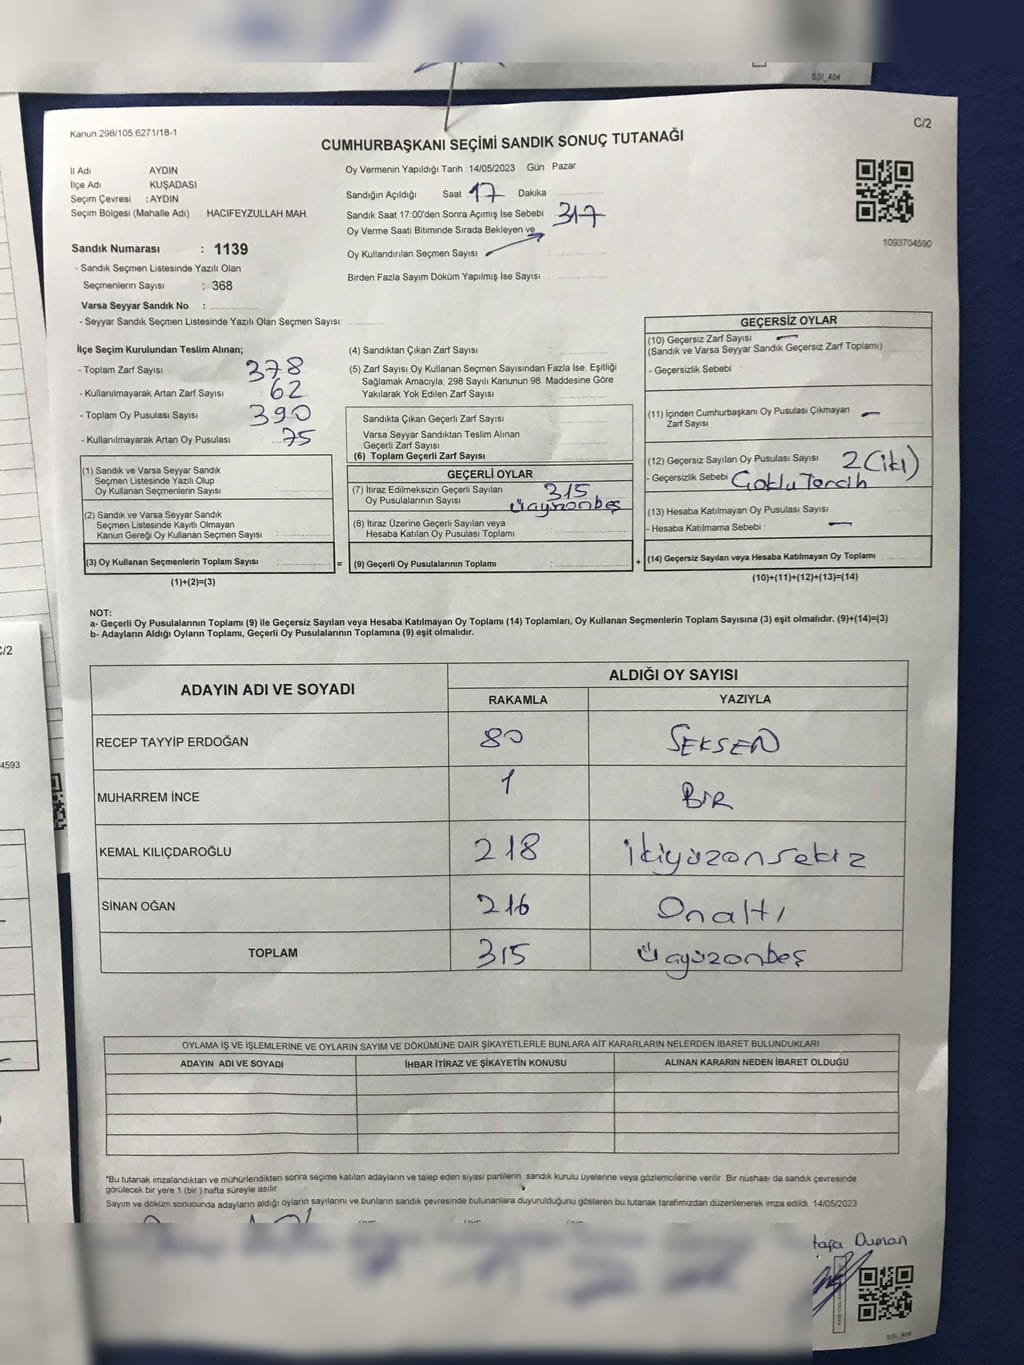 S3I_404
Kanun:298/105,6271/18-1
C/2
CUMHURBAŞKANI SEÇİMİ SANDIK SONUÇ TUTANAĞI
İl Adı AYDIN
İlçe Adı KUŞADASI
Seçim Çevresi : AYDIN
Seçim Bölgesi (Mahalle Adı) : HACIFEYZULLAH MAH.
Oy Vermenin Yapıldığı Tarih :14/05/2023 Gün : Pazar
Sandığın Açıldığı Saat 17 Dakika
Sandık Saat 17:00'den Sonra Açımış İse Sebebi 317
Oy Verme Saati Bitiminde Sırada Bekleyen ve
Oy Kullandırılan Seçmen Sayısı :
Birden Fazla Sayım Döküm Yapılmış İse Sayısı :
1093704590
Sandık Numarası : 1139
- Sandık Seçmen Listesinde Yazılı Olan
Seçmenlerin Sayısı : 368
Varsa Seyyar Sandık No :
- Seyyar Sandık Seçmen Listesinde Yazılı Olan Seçmen Sayısı:
İlçe Seçim Kurulundan Teslim Alınan;
- Toplam Zarf Sayısı : 378
- Kullanılmayarak Artan Zarf Sayısı : 62
- Toplam Oy Pusulası Sayısı : 390
- Kullanılmayarak Artan Oy Pusulası : 75
(1) Sandık ve Varsa Seyyar Sandık
Seçmen Listesinde Yazılı Olup
Oy Kullanan Seçmenlerin Sayısı :
(2) Sandık ve Varsa Seyyar Sandık
Seçmen Listesinde Kayıtlı Olmayan
Kanun Gereği Oy Kullanan Seçmen Sayısı :
(3) Oy Kullanan Seçmenlerin Toplam Sayısı :
(1)+(2)=(3)
=
(4) Sandıktan Çıkan Zarf Sayısı :
(5) Zarf Sayısı Oy Kullanan Seçmen Sayısından Fazla İse, Eşitliği
Sağlamak Amacıyla; 298 Sayılı Kanunun 98. Maddesine Göre
Yakılarak Yok Edilen Zarf Sayısı :
Sandıkta Çıkan Geçerli Zarf Sayısı :
Varsa Seyyar Sandıktan Teslim Alınan
Geçerli Zarf Sayısı :
(6) Toplam Geçerli Zarf Sayısı :
GEÇERLİ OYLAR
(7) İtiraz Edilmeksizin Geçerli Sayılan 315
Oy Pusulalarının Sayısı : üçyüzonbeş
(8) İtiraz Üzerine Geçerli Sayılan veya
Hesaba Katılan Oy Pusulası Toplamı :
(9) Geçerli Oy Pusulalarının Toplamı :
+
GEÇERSİZ OYLAR
(10) Geçersiz Zarf Sayısı : —
(Sandık ve Varsa Seyyar Sandık Geçersiz Zarf Toplamı)
- Geçersizlik Sebebi :
(11) İçinden Cumhurbaşkanı Oy Pusulası Çıkmayan —
Zarf Sayısı
(12) Geçersiz Sayılan Oy Pusulası Sayısı : 2(iki)
- Geçersizlik Sebebi : Çoklu Tercih
(13) Hesaba Katılmayan Oy Pusulası Sayısı :
- Hesaba Katılmama Sebebi : —
(14) Geçersiz Sayılan veya Hesaba Katılmayan Oy Toplamı :
(10)+(11)+(12)+(13)=(14)
NOT:
a- Geçerli Oy Pusulalarının Toplamı (9) ile Geçersiz Sayılan veya Hesaba Katılmayan Oy Toplamı (14) Toplamları, Oy Kullanan Seçmenlerin Toplam Sayısına (3) eşit olmalıdır. (9)+(14)=(3)
b- Adayların Aldığı Oyların Toplamı, Geçerli Oy Pusulalarının Toplamına (9) eşit olmalıdır.
ADAYIN ADI VE SOYADI
ALDIĞI OY SAYISI
RAKAMLA YAZIYLA
RECEP TAYYİP ERDOĞAN 80 SEKSEN
MUHARREM İNCE 1 BİR
KEMAL KILIÇDAROĞLU 218 İkiyüzonsekiz
SİNAN OĞAN 216 Onaltı
TOPLAM 315 Üçyüzonbeş
OYLAMA İŞ VE İŞLEMLERİNE VE OYLARIN SAYIM VE DÖKÜMÜNE DAİR ŞİKAYETLERLE BUNLARA AİT KARARLARIN NELERDEN İBARET BULUNDUKLARI
ADAYIN ADI VE SOYADI İHBAR İTİRAZ VE ŞİKAYETİN KONUSU ALINAN KARARIN NEDEN İBARET OLDUĞU
*Bu tutanak imzalandıktan ve mühürlendikten sonra seçime katılan adayların ve talep eden siyasi partilerin sandık kurulu üyelerine veya gözlemcilerine verilir. Bir nüshası da sandık çevresinde
görülecek bir yere 1 (bir) hafta süreyle asılır.
Sayım ve döküm sonucunda adayların aldığı oyların sayılarını ve bunların sandık çevresinde bulunanlara duyurulduğunu gösteren bu tutanak tarafımızdan düzenlenerek imza edildi. 14/05/2023
tafa Duman
S3I_404
C/2
4593